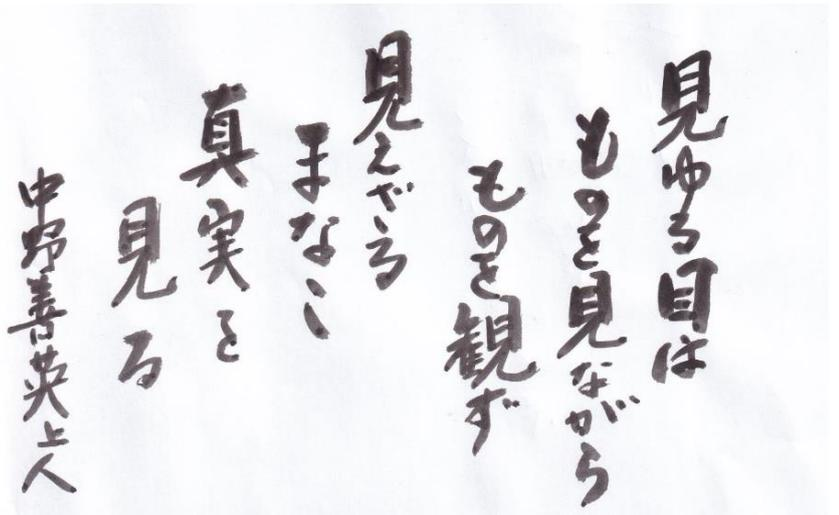 見ゆる目は
ものを見ながら
ものを観ず
見えざる
まなこ
真実を
見る
中野善英上人